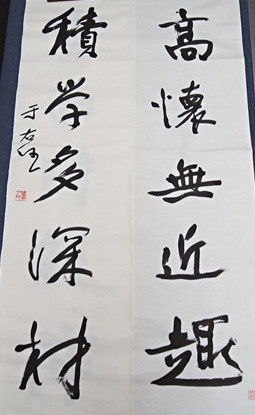 高懷無近趣
積学多深材
于右任